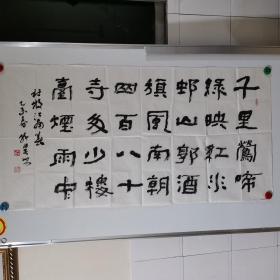 千里鶯啼
綠映紅水
邨山郭酒
旗風南朝
四百八十
寺多少樓
臺煙雨中
杜牧江南春
乙未春